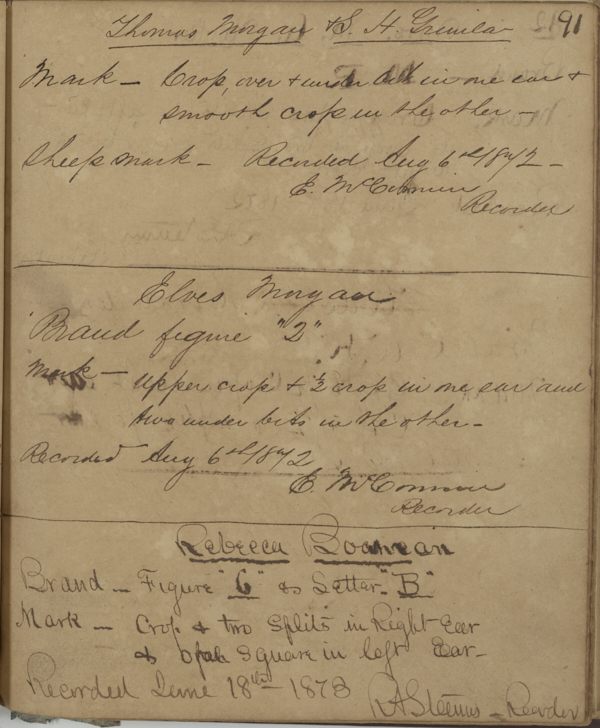 91
Thomas Morgan & S. H.
Mark – Crop, over & under bit in one ear &
smooth crop in the other –
Sheep mark – Recorded Aug 6th 1872 –
E. McConnin
Recorder
Elves Morgan
Brand figure "2"
Mark – Upper crop & ½ crop in one ear and
two under bits in the other –
Recorded Aug 6th 1872
E. McConnin
Recorder
Rebecca
Brand – Figure "6" & Letter "B"
Mark – Crop & two Splits in Right Ear
& Square in left Ear –
Recorded June 18th – 1873
R A Stearns – Recorder